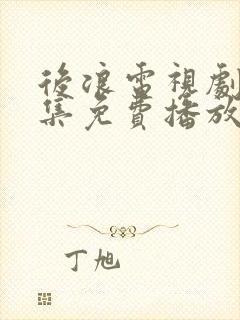 後浪電視劇
集免費播放
丁旭